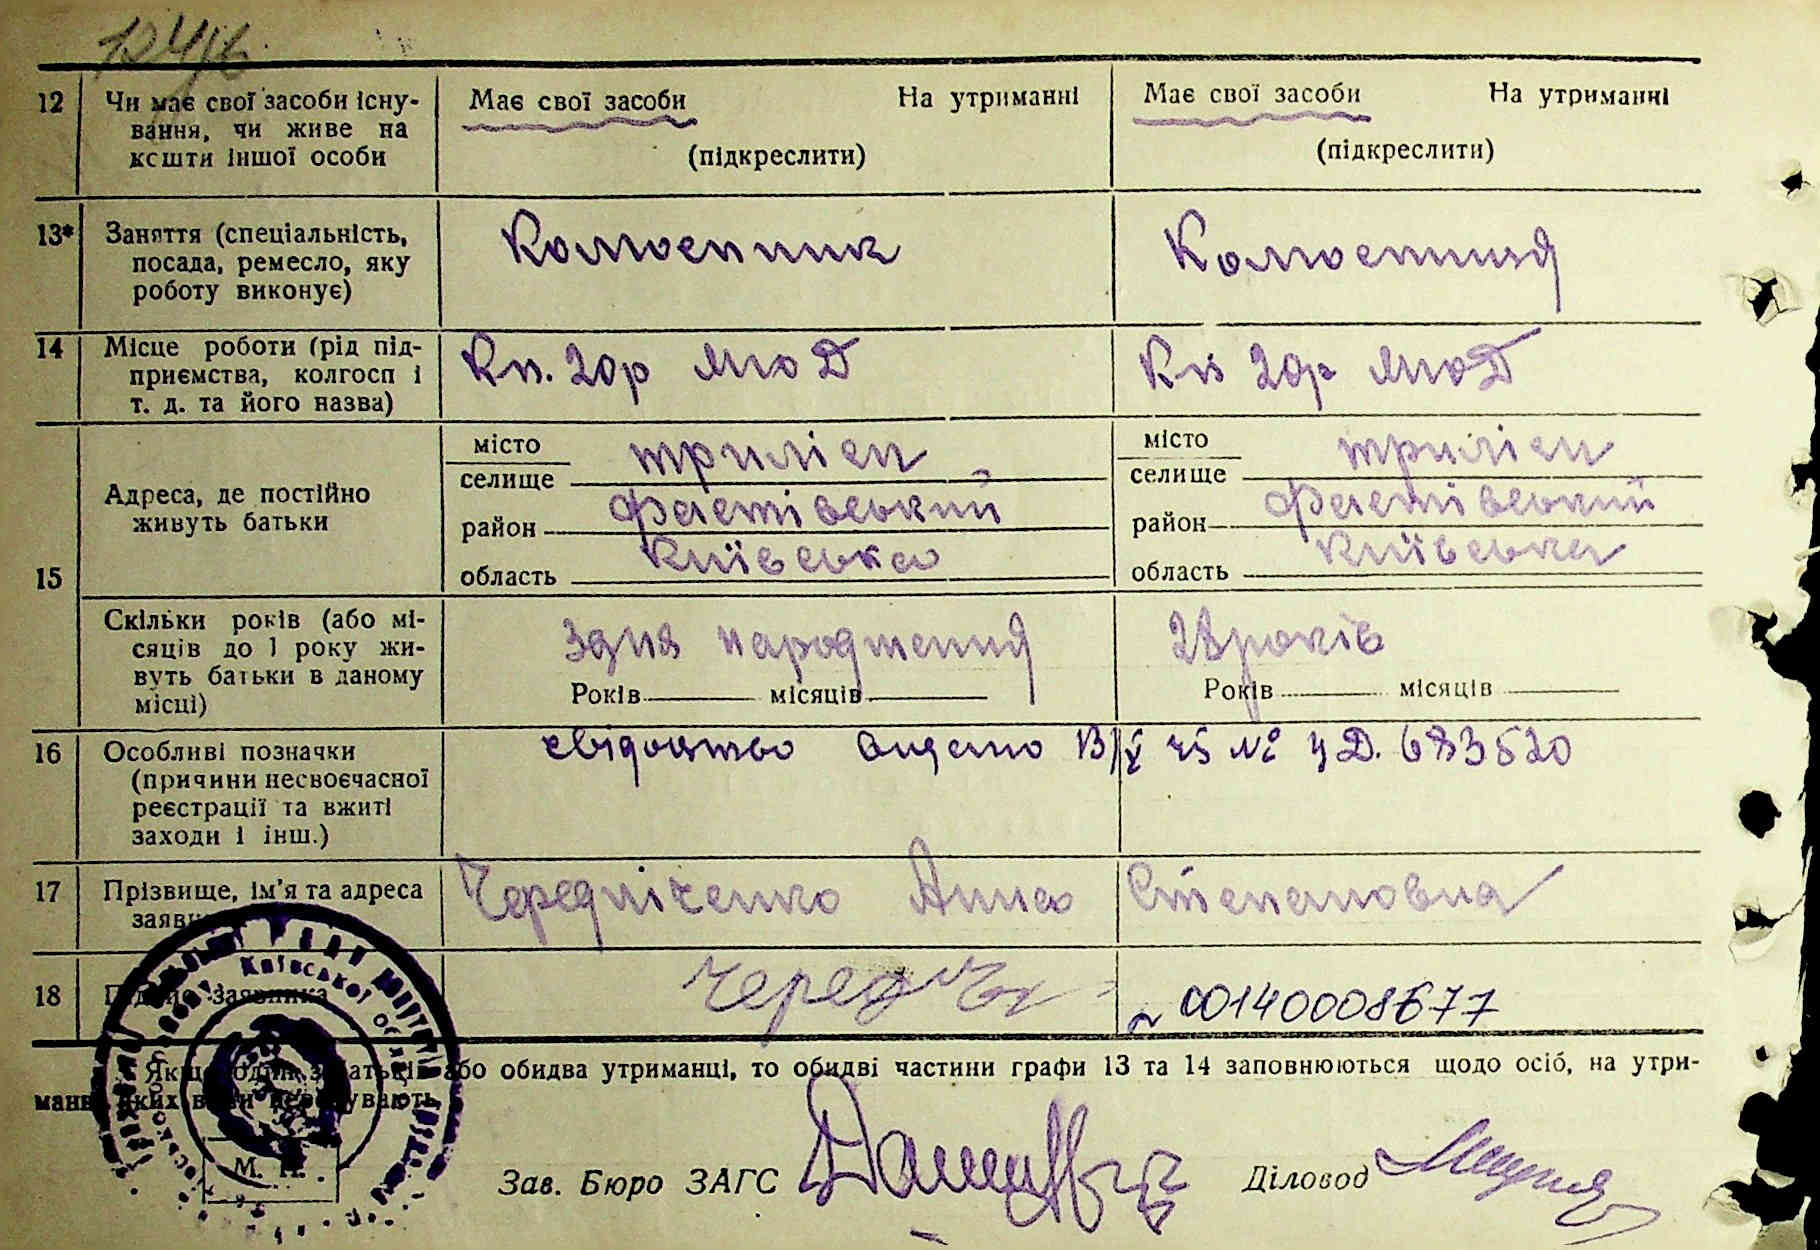 1246
12 Чи має свої засоби існу-
вання, чи живе на
кошти іншої особи
Має свої засоби На утриманні
(підкреслити)
Має свої засоби На утриманні
(підкреслити)
13* Заняття (спеціальність,
посада, ремесло, яку
роботу виконує)
Колгоспник
Колгоспниця
14 Місце роботи (рід під-
приємства, колгосп і
т. д. та його назва)
мюД
мюД
15
Адреса, де постійно
живуть батьки
місто
селище Триліси
район Фастівський
область Київська
місто
селище Триліси
район Фастівський
область Київська
Скільки років (або мі-
сяців до 1 року жи-
вуть батьки в даному
місці)
з дня народження
Років місяців
28 років
Років місяців
16 Особливі позначки
(причини несвоєчасної
реєстрації та вжиті
заходи і інш.)
свідоцтво видано 13/V 45 № ЧД. 683520
17 Прізвище, ім'я та адреса
Чередніченко Анна Степановна
18 Підпис заявника
Черед
~ 00140008677
Якщо один з батьків або обидва утриманці, то обидві частини графи 13 та 14 заповнюються щодо осіб, на утри-
манні яких вони перебувають
Київської
М. П.
Зав. Бюро ЗАГС
Діловод